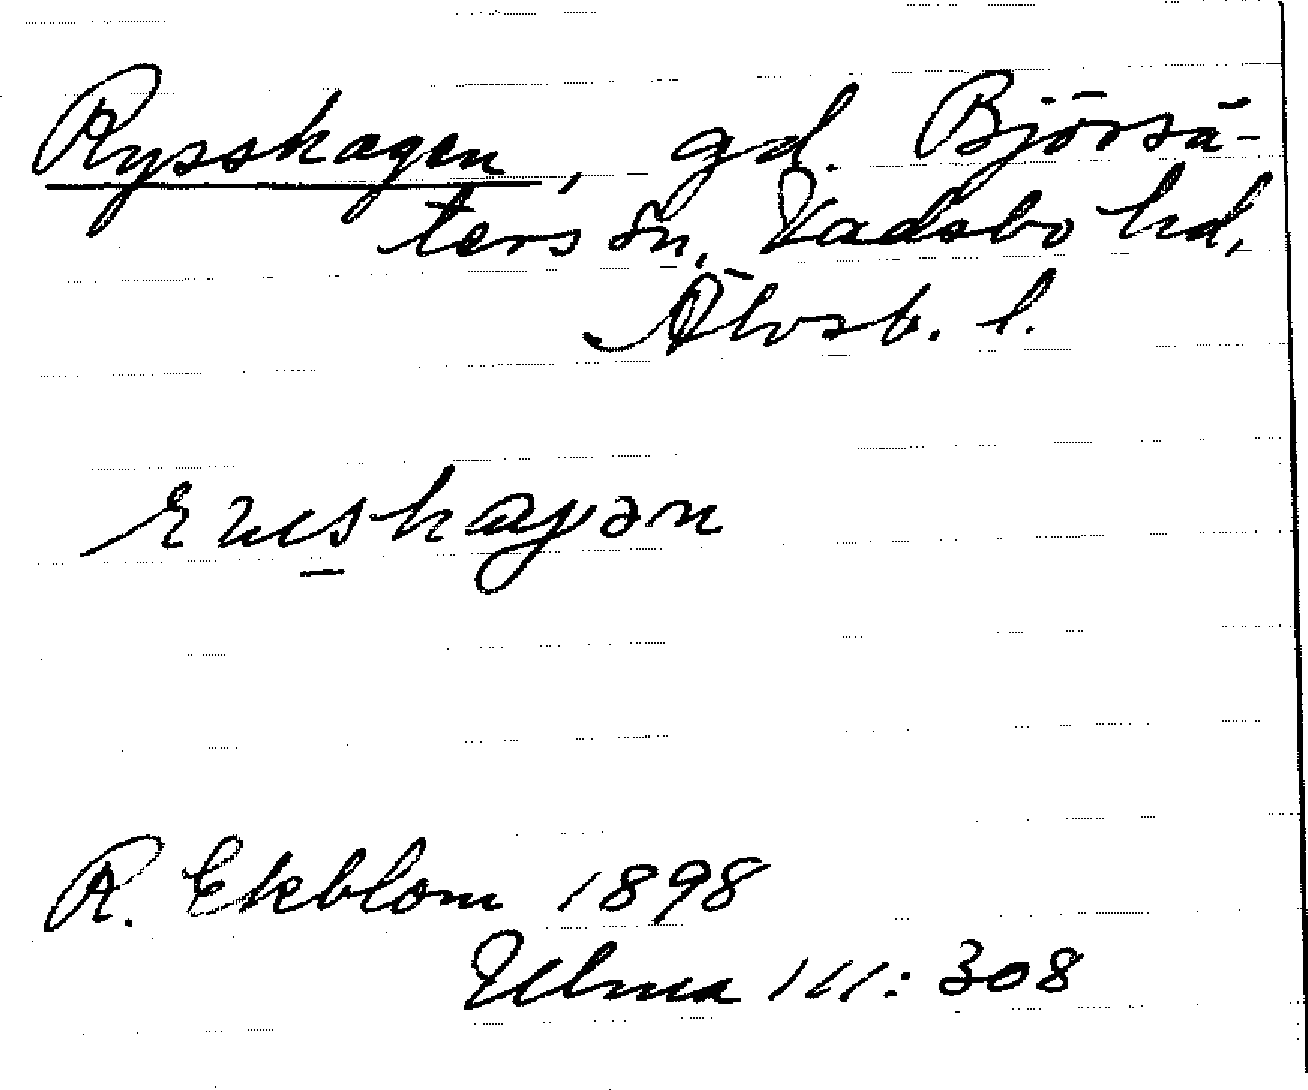 Rysskagen, gd. Björsä-
ters sn, Vadsbo hd,
Älvsb. l.
R. Ekblom 1898
Ulma 111: 308